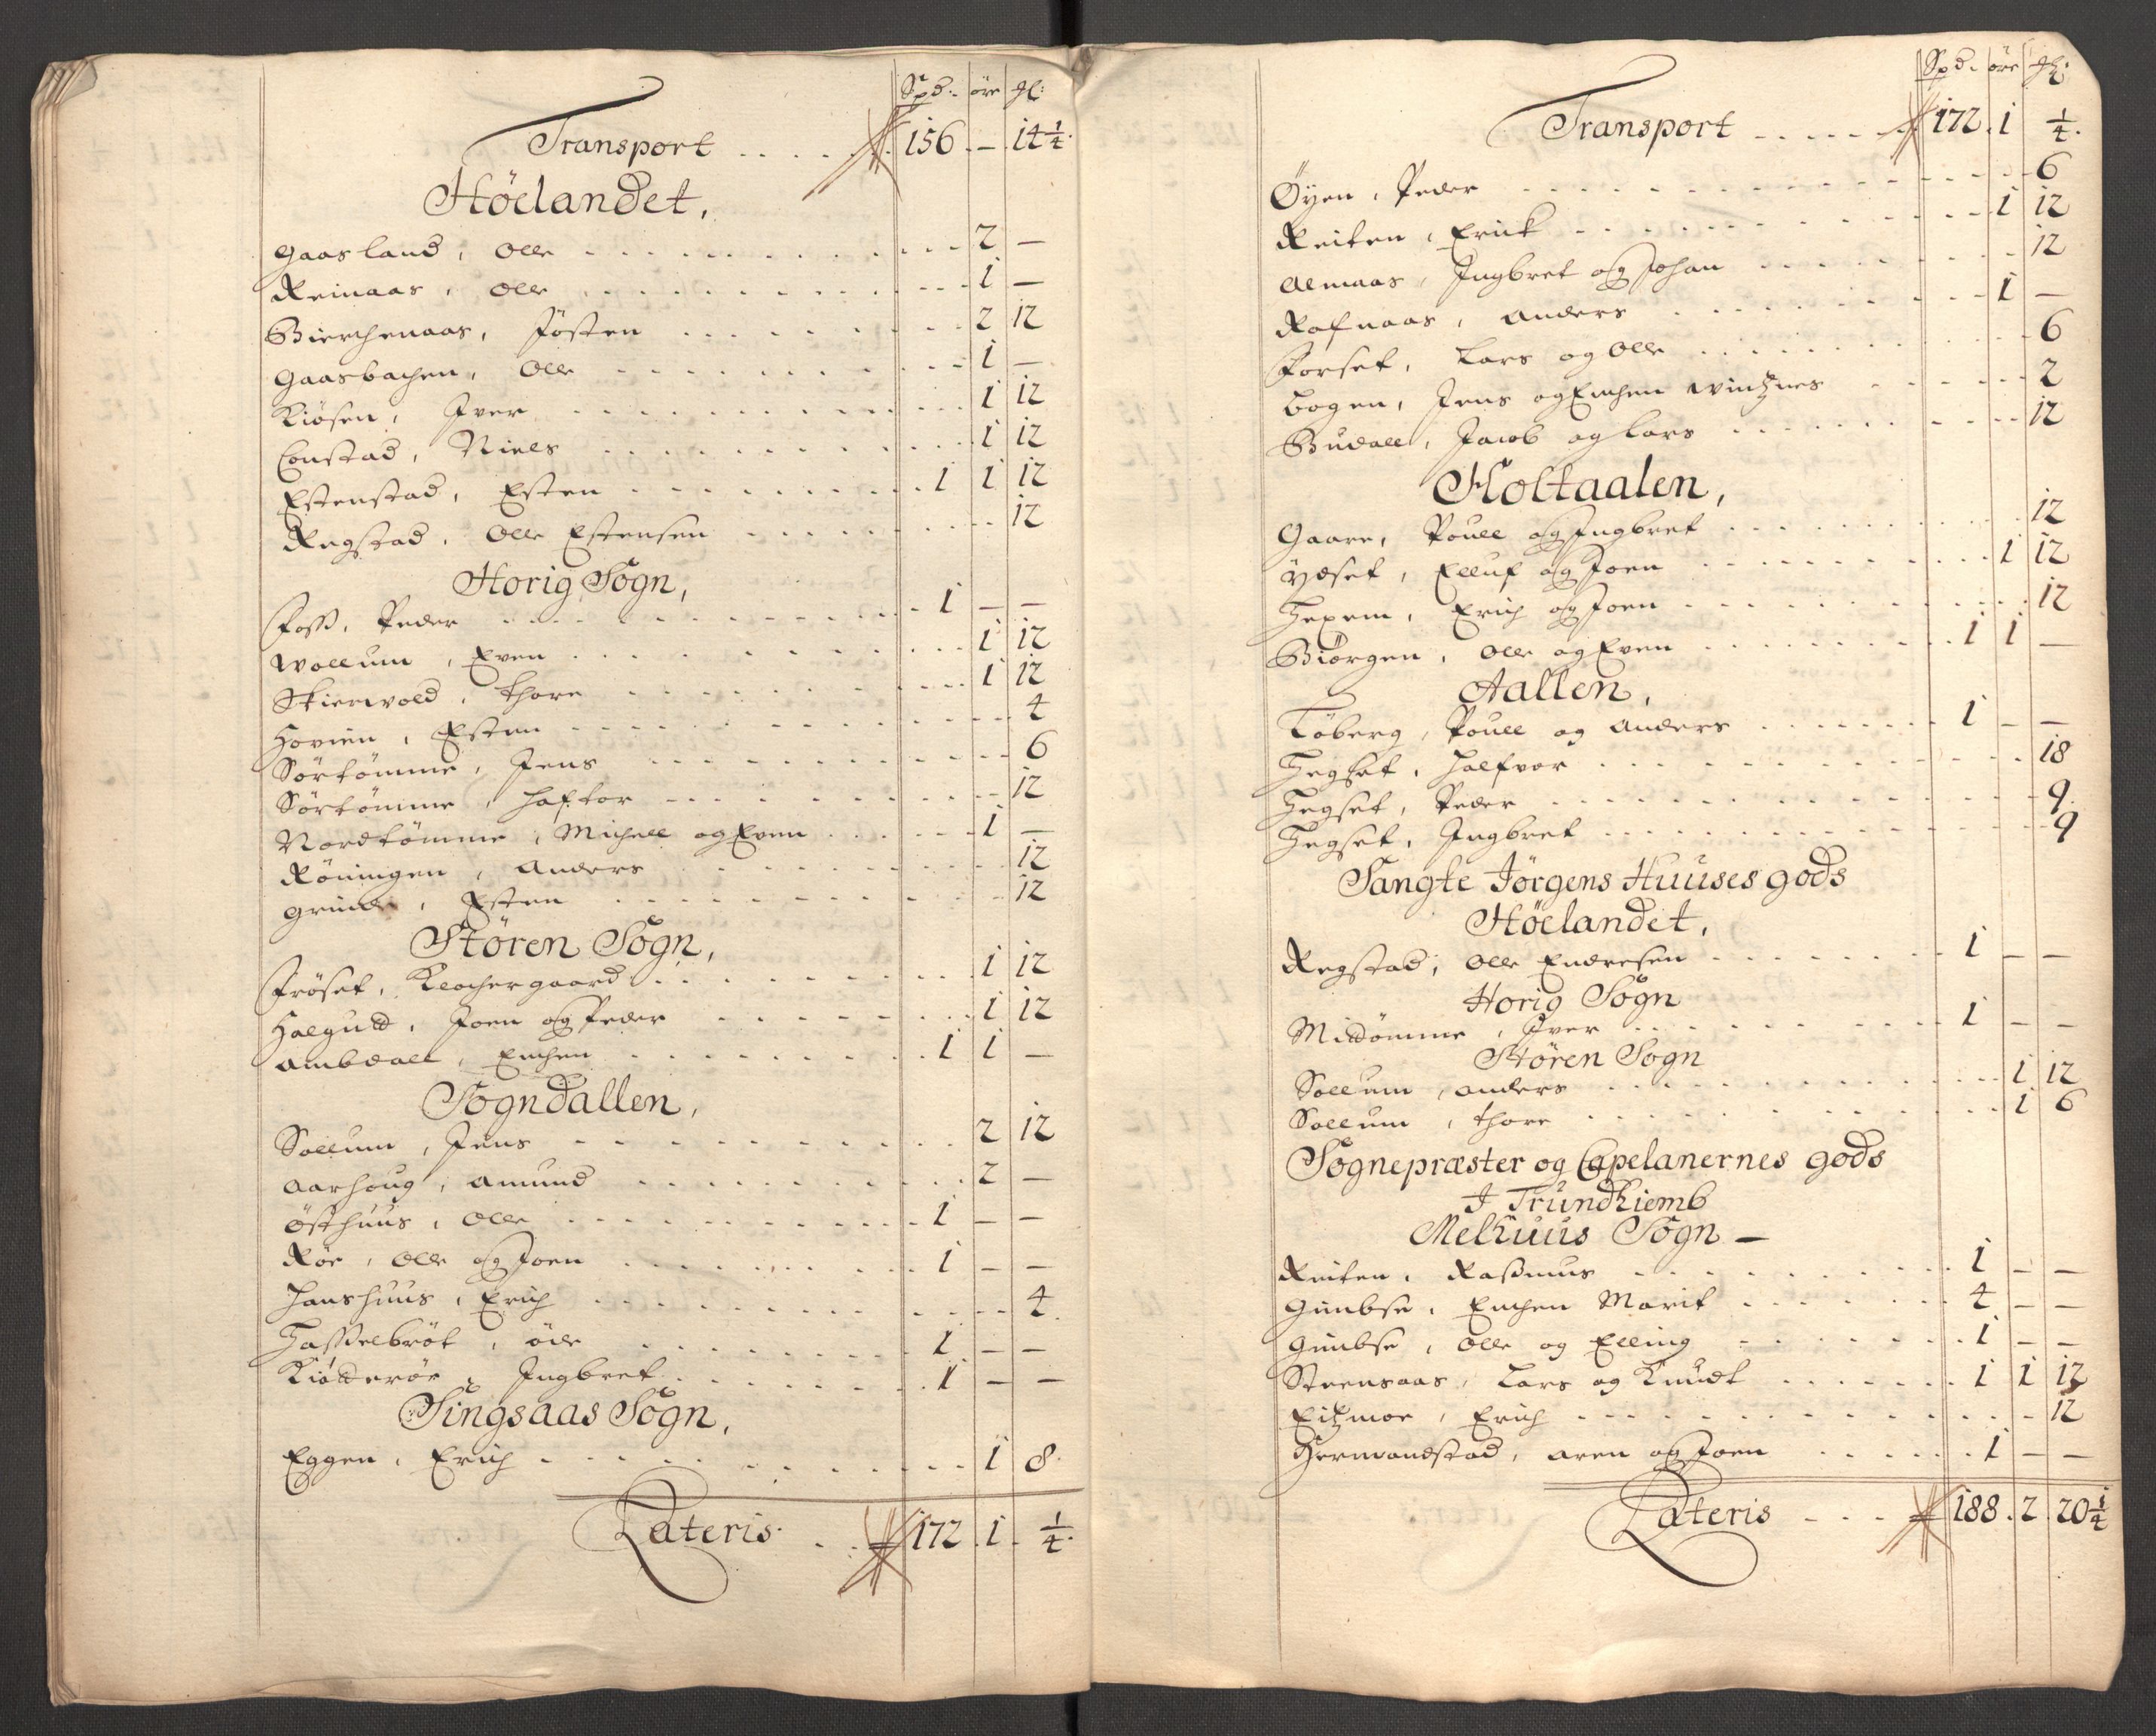 Spd. öre gl:
Transport . . . . . 156 – 14 1/4.
Höelandet,
Gaasland, Olle . . . . 2 –
Reinaas, Olle . . . . 1 –
Bierchenaas, Josten . . . . 2 12
Gaasbachen, Olle . . . . 1 –
Kiösen, Iver . . . . 1 12
Constad, Niels . . . . 1 12
Estenstad, Esten . . . . 1 1 12
Regstad, Olle Estensen . . . . 12
Horig Sogn,
Foss, Peder . . . . 1 – –
Wollum, Even . . . . 1 12
Skierwold, Thore . . . . 1 12
Hovien, Esten . . . . 4
Sörtömme, Jens . . . . 6
Sörtömme, Haftor . . . . 12
Nordtömme, Michell og Even . . . . 1 –
Röningen, Anders . . . . 12
Grinde, Esten . . . . 12
Stören Sogn,
Fröset, Klochergaard . . . . 1 12
Halguld, Joen og Peder . . . . 1 12
Ambdall, Enchen . . . . 1 1 –
Sogndallen,
Sollum, Jens . . . . 2 12
Aarhoug, Amund . . . . 2 –
Östhuus, Olle . . . . 1 – –
Röe, Olle og Joen . . . . 1 – –
Hanshuus, Erich . . . . 4.
Hasselbröt, öde . . . . 1 – –
Kiölderöe, Ingbret . . . . 1 – –
Singsaas Sogn,
Eggen, Erich . . . . 1 8.
Lateris . . 172. 1. 1/4.
Spd. öre gl:
Transport . . . . . 172. 1 1/4.
Öyen, Peder . . . . 6
Reiten, Erick . . . . 1 12
Almaas, Ingbret og Johan . . . . 12
Rafnaas, Anders . . . . 1 –
Forset, Lars og Olle . . . . 6
Bogen, Jens og Enchen Wintznes . . . . 2
Budall, Jacob og Lars . . . . 12
Holtaalen,
Gaare, Pouell og Ingbret . . . . 12
Ydset, Elluf og Joen . . . . 1 12
Hexem, Erich og Joen . . . . 12
Biörgen, Olle og Even . . . . 1 1 –
Aallen,
Töberg, Pouell og Anders . . . . 1 – –
Hegset, Halfvor . . . . 18
Hegset, Peder . . . . 9.
Hegset, Ingbret . . . . 9
Sangte Jörgens Huuses gods
Höelandet,
Regstad, Olle Endresen . . . . 1 – –
Horig Sogn
Midtömme, Iver . . . . 1 – –
Stören Sogn
Sollum, Anders . . . . 1 12
Sollum, Thore . . . . 1 6
Sognepræster og Capelanernes gods
I Trundhiemb
Melhuus Sogn –
Reiten, Rasmus . . . . 1 – –
Gimbse, Enchen Marit . . . . 4 – –
Gimbse, Olle og Elling . . . . 1 – –
Steensaas, Lars og Knudt . . . . 1 1 12
Eitzmoe, Erich . . . . 12
Hermandstad, Aren og Joen . . . . 1 – –
Lateris - - - 188. 2. 20 1/4